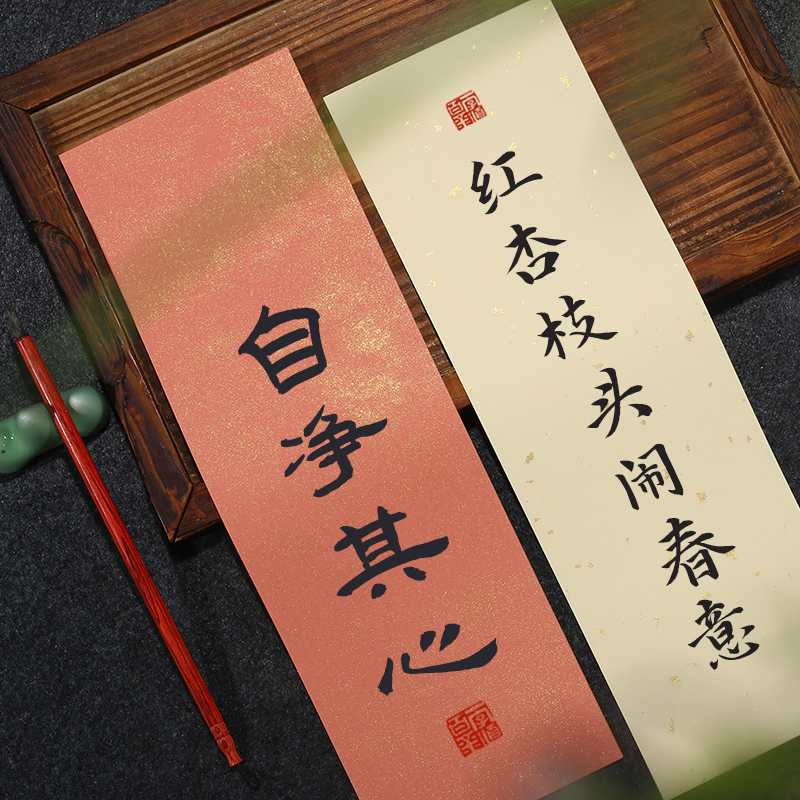 自净其心
红杏枝头闹春意